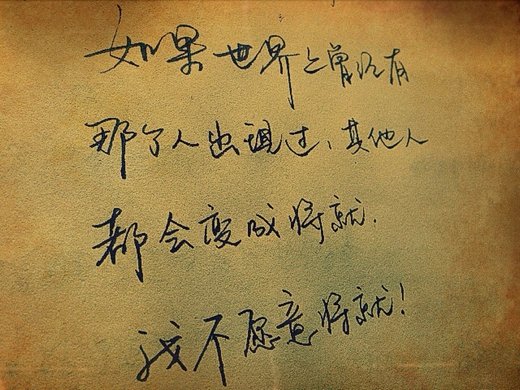 如果世界上曾经有
那个人出现过、其他人
都会变成将就.
我不愿意将就!